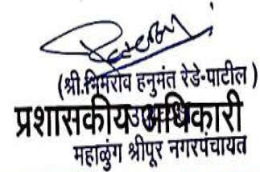 (श्री.भिमराव हनुमंत रेडे-पाटील )
प्रशासकीय अधिकारी
महाळुंग श्रीपूर नगरपंचायत